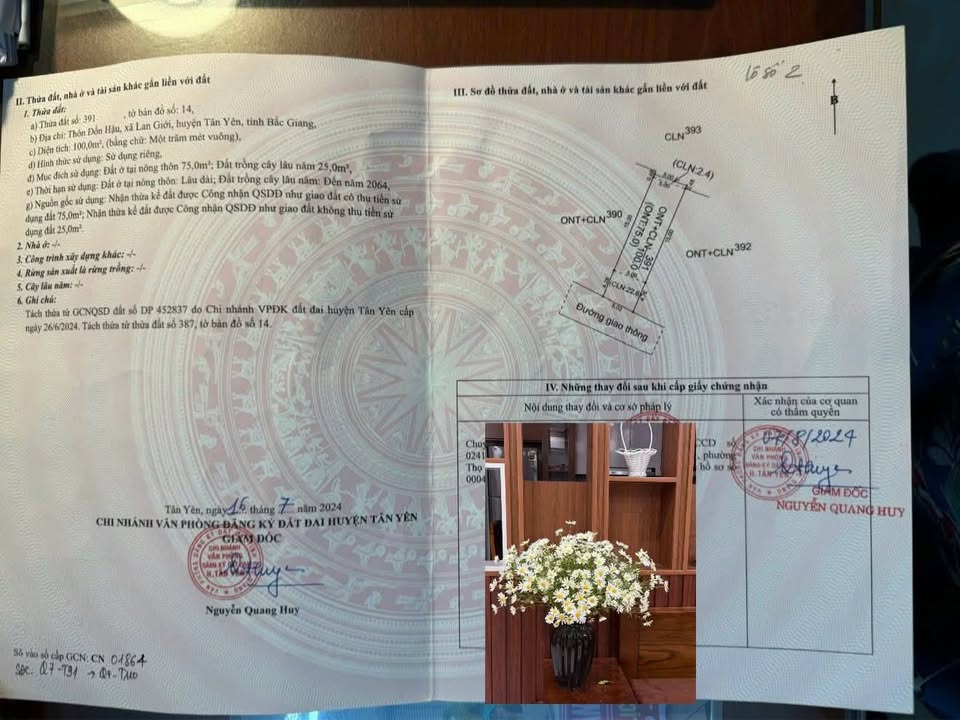 II. Thửa đất, nhà ở và tài sản khác gắn liền với đất
1. Thửa đất:
a) Thửa đất số: 391 , tờ bản đồ số: 14,
b) Địa chỉ: Thôn Đồn Hậu, xã Lan Giới, huyện Tân Yên, tỉnh Bắc Giang,
c) Diện tích: 100,0m², (bằng chữ: Một trăm mét vuông),
d) Hình thức sử dụng: Sử dụng riêng,
đ) Mục đích sử dụng: Đất ở tại nông thôn 75,0m²; Đất trồng cây lâu năm 25,0m²,
e) Thời hạn sử dụng: Đất ở tại nông thôn: Lâu dài; Đất trồng cây lâu năm: Đến năm 2064,
g) Nguồn gốc sử dụng: Nhận thừa kế đất được Công nhận QSDĐ như giao đất có thu tiền sử
dụng đất 75,0m²; Nhận thừa kế đất được Công nhận QSDĐ như giao đất không thu tiền sử
dụng đất 25,0m².
2. Nhà ở: -/-
3. Công trình xây dựng khác: -/-
4. Rừng sản xuất là rừng trồng: -/-
5. Cây lâu năm: -/-
6. Ghi chú:
Tách thửa từ GCNQSD đất số DP 452837 do Chi nhánh VPĐK đất đai huyện Tân Yên cấp
ngày 26/6/2024. Tách thửa từ thửa đất số 387, tờ bản đồ số 14.
Tân Yên, ngày 16 tháng 7 năm 2024
CHI NHÁNH VĂN PHÒNG ĐĂNG KÝ ĐẤT ĐAI HUYỆN TÂN YÊN
GIÁM ĐỐC
CHI NHÁNH
VĂN PHÒNG
ĐĂNG KÝ ĐẤT ĐAI
H.TÂN YÊN
Nguyễn Quang Huy
Số vào sổ cấp GCN: CN 01864
III. Sơ đồ thửa đất, nhà ở và tài sản khác gắn liền với đất
lô số 2
B
CLN 393
(CLN:2.4)
5.00
5.00
ONT+CLN 390
ONT+CLN 391
(ONT:75.0) 100.0
ONT+CLN 392
5.00
(CLN:22.6)
5.00
Đường giao thông
IV. Những thay đổi sau khi cấp giấy chứng nhận
Nội dung thay đổi và cơ sở pháp lý
Xác nhận của cơ quan
có thẩm quyền
CCD số
0241
, phường
Thọ
hồ sơ số
0004
07/8/2024
CHI NHÁNH
VĂN PHÒNG
ĐĂNG KÝ ĐẤT ĐAI
H.TÂN YÊN
GIÁM ĐỐC
NGUYỄN QUANG HUY